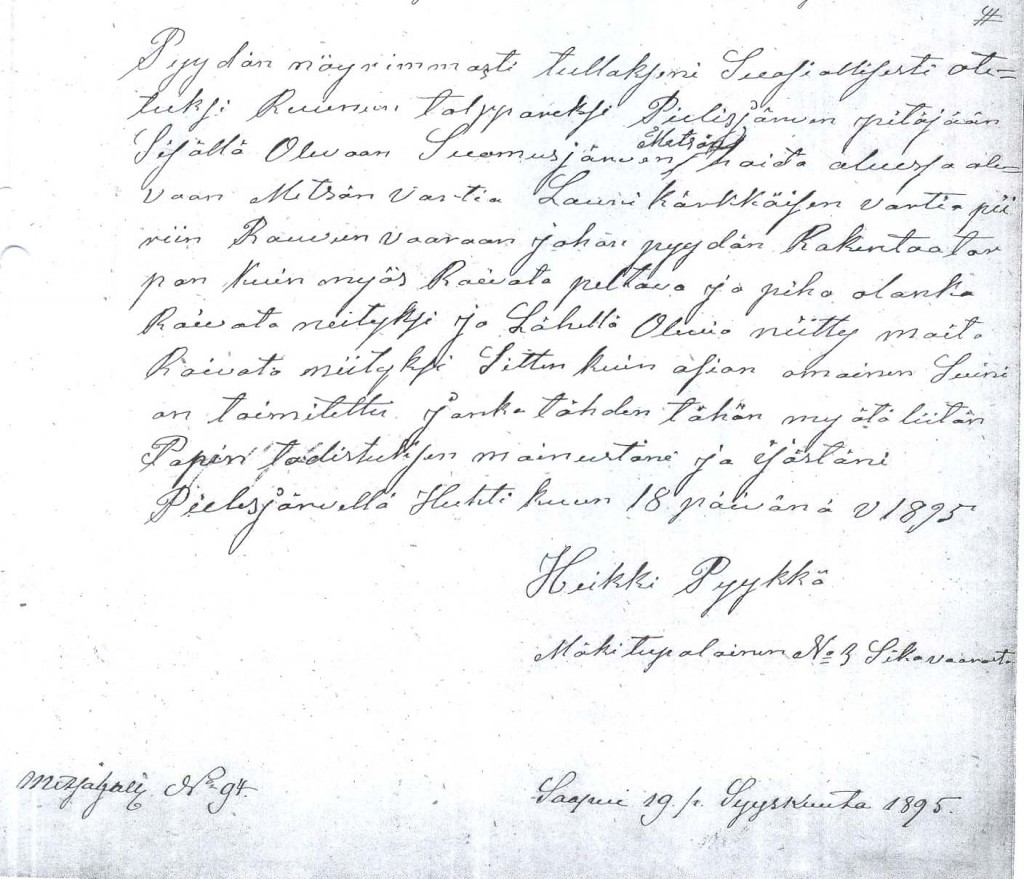 Pyydän nöyrimmästi tullakseni Suosiollisesti ote-
tuksi Kruunun torppareksi Pielisjärven pitäjään
Metsän
Sisällä Olevaan Suomusjärven hoito aluessa ole-
vaan Metsän vartia Lauri Kärkkäisen vartia pii
riin Rauvunvaaraan johon pyydän Rakentaa tor
pan kuin myös Raivata peltova ja piha alanko
Raivata neityksi ja Lähellä Olevia niitty maita
Raivata niityksi Sitten kuin asian omainen Suini
on toimitettu jonka tähden tähän myötä liitän
Papin todistuksen maineestani ja ijästäni
Pielisjärvellä Huhti kuun 18 päivänä v 1895
Heikki Pyykkö
Mäkitupalainen No 3 Sikavaarasta
No 94.
Saapui 19 p. Syyskuuta 1895.